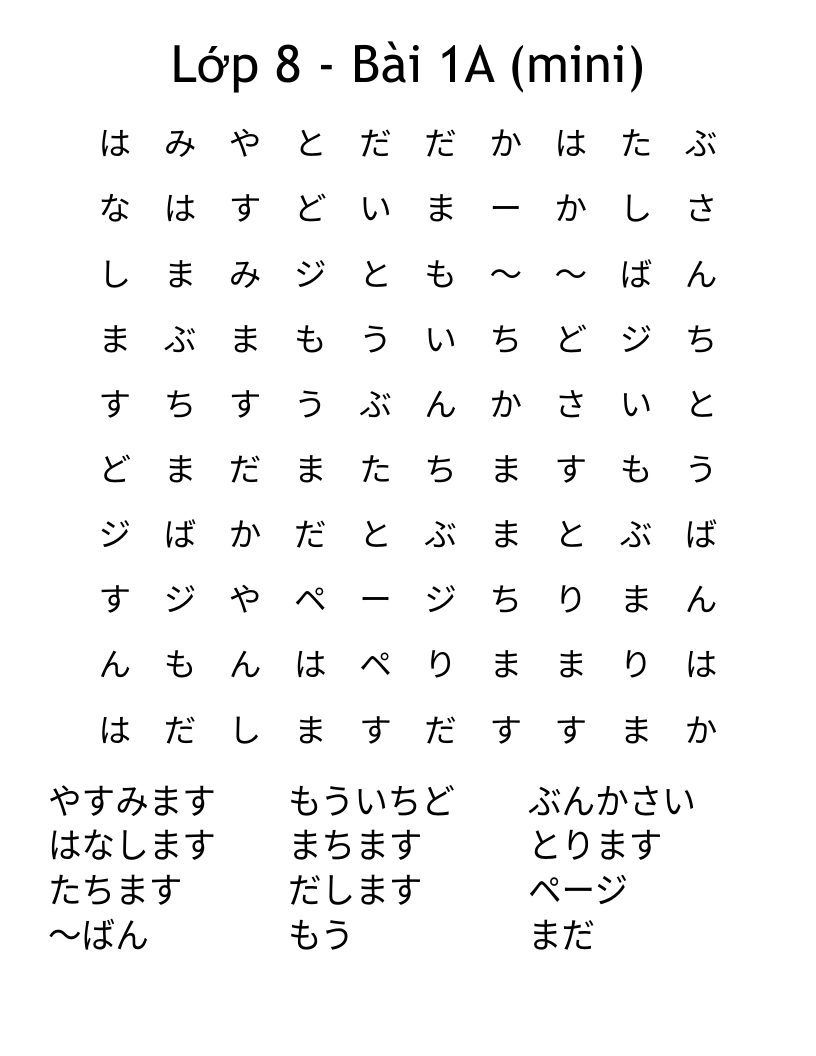 Lớp 8 - Bài 1A (mini)
は み や と だ だ か は た ぶ
な は す ど い ま ー か し さ
し ま み ジ と も 〜 〜 ば ん
ま ぶ ま も う い ち ど ジ ち
す ち す う ぶ ん か さ い と
ど ま だ ま た ち ま す も う
ジ ば か だ と ぶ ま と ぶ ば
す ジ や ペ ー ジ ち り ま ん
ん も ん は ペ り ま ま り は
は だ し ま す だ す す ま か
やすみます もういちど ぶんかさい
はなします まちます とります
たちます だします ページ
〜ばん もう まだ